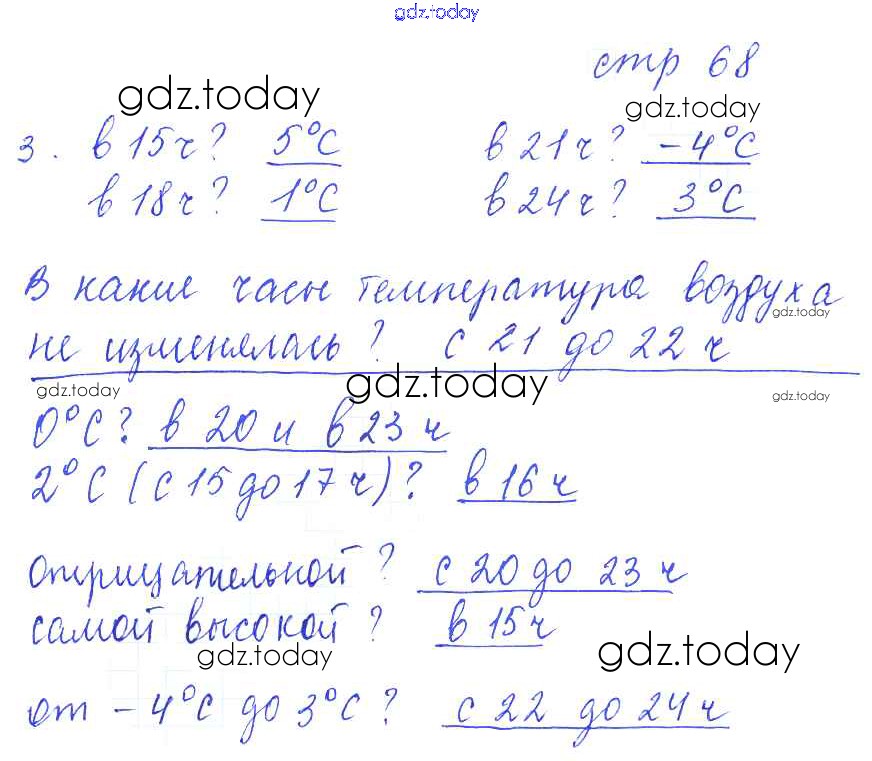 gdz.today
стр 68
gdz.today
gdz.today
3. в 15 ч? 5°С в 21 ч? -4°С
в 18 ч? 1°С в 24 ч? 3°С
В какие часы температура воздуха
gdz.today
не изменялась? с 21 до 22 ч
gdz.today gdz.today gdz.today
0°С? в 20 и в 23 ч
2°С (с 15 до 17 ч)? в 16 ч
отрицательной? с 20 до 23 ч
самой высокой? в 15 ч
gdz.today gdz.today
от -4°С до 3°С? с 22 до 24 ч